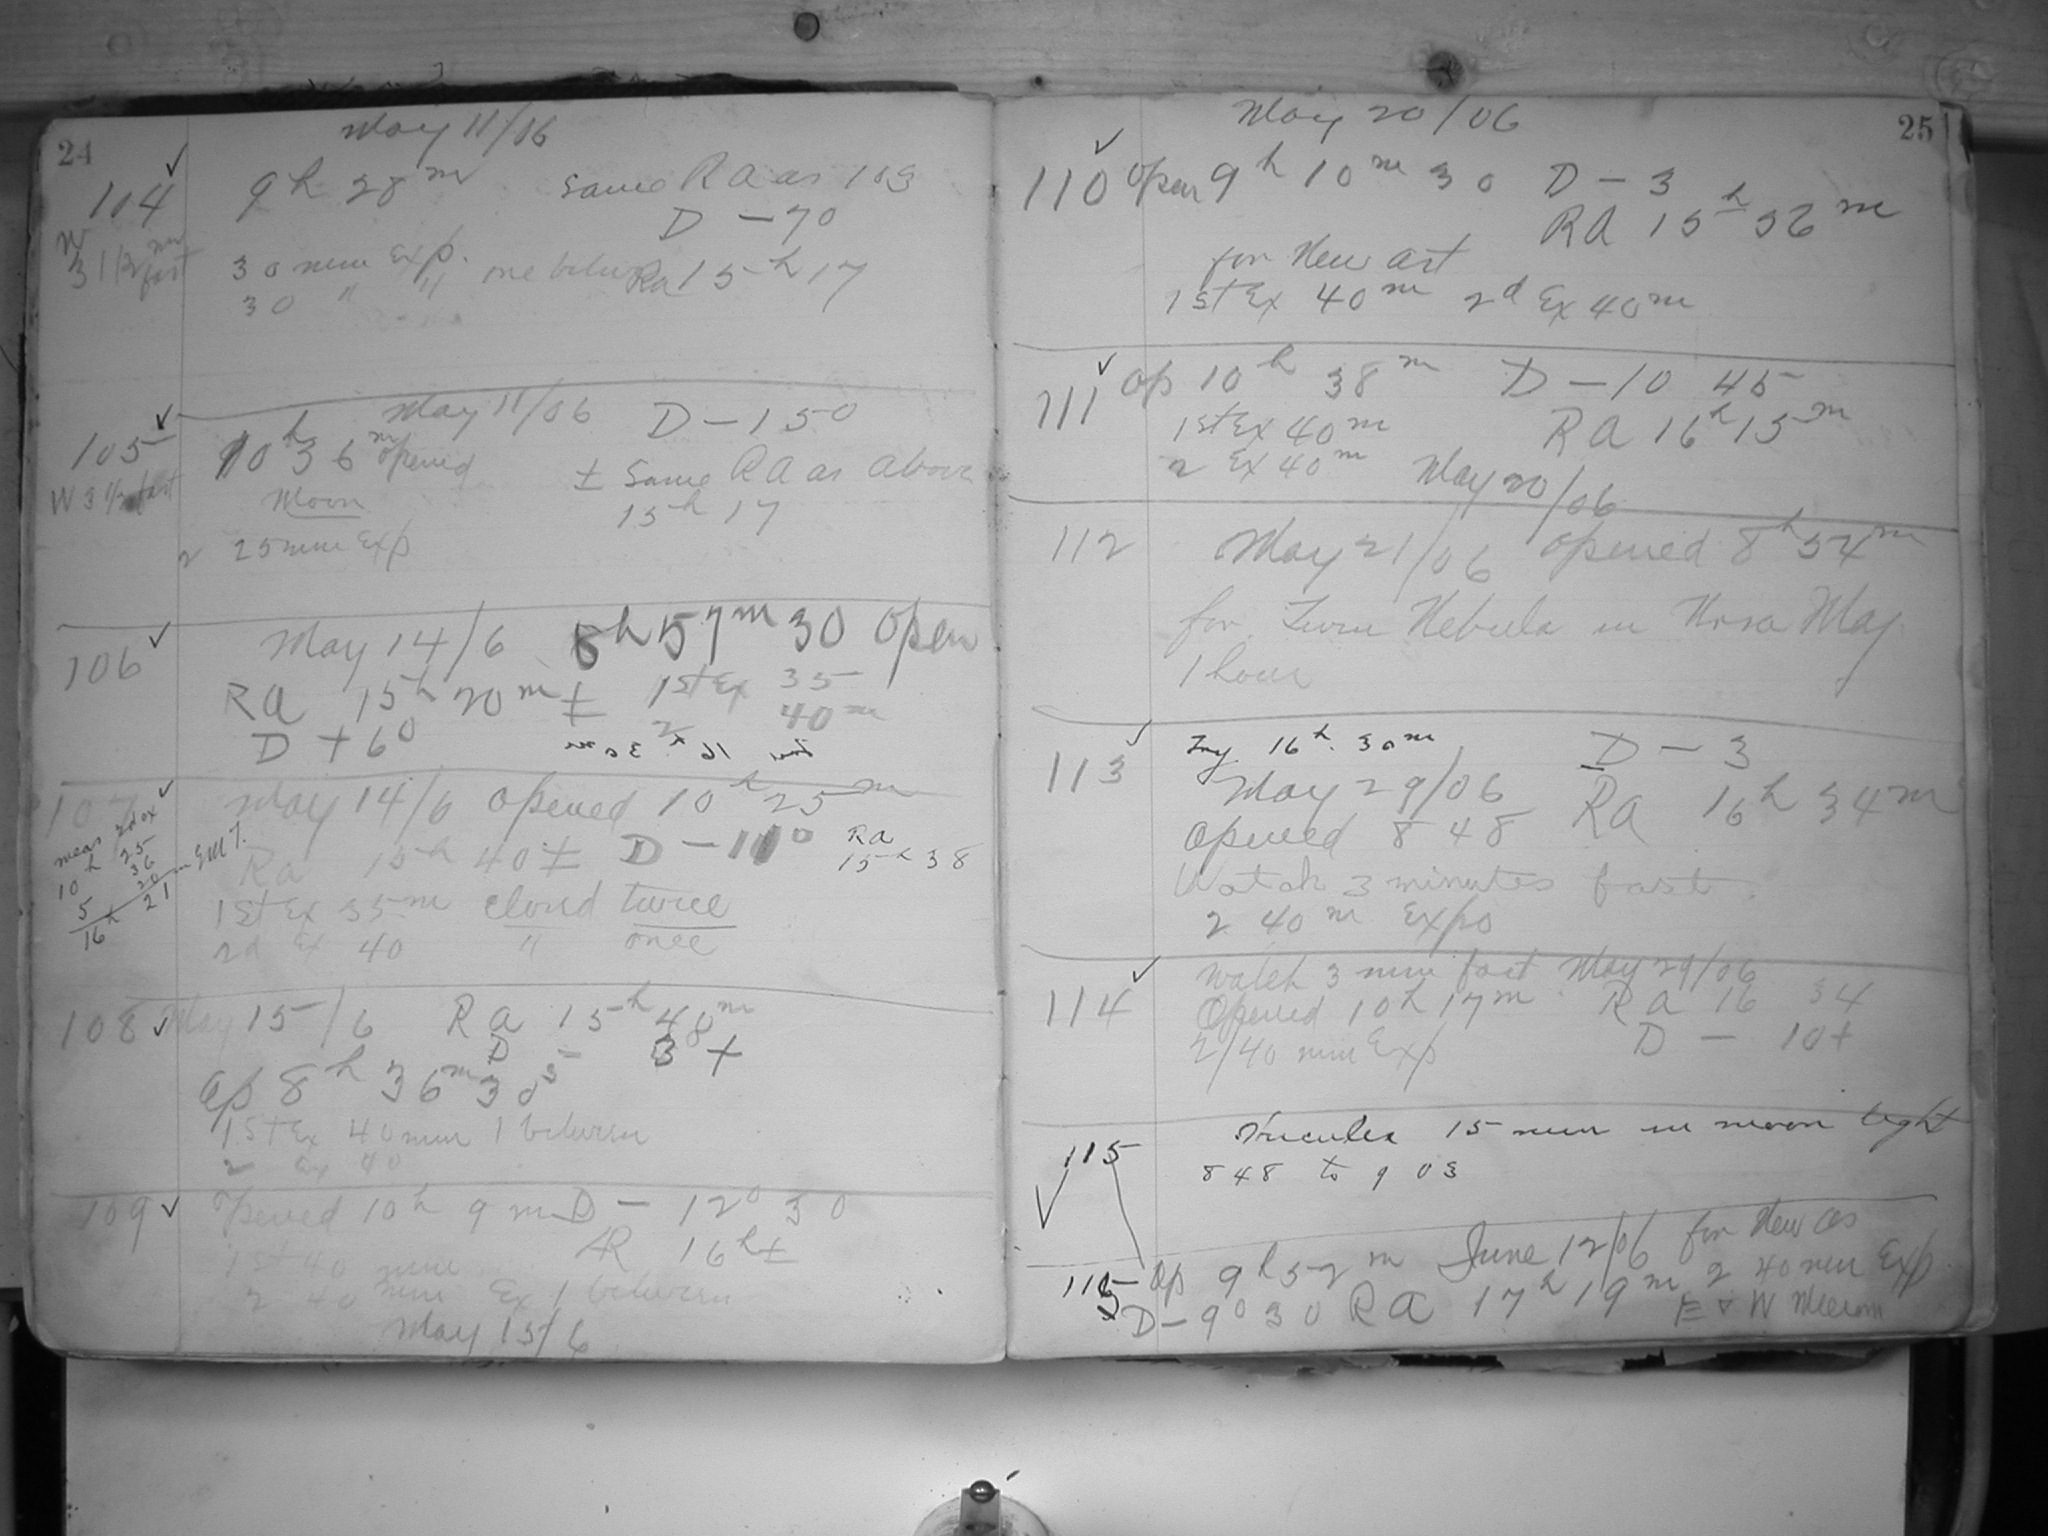 24
May 11/06
104 9h 28m same RA as 103
D -70
W 3 1/2 m fast
30 min Exp. one between Ra 15h 17
30 " "
May 11/06 D-150
105 10h 36m opened
± same RA as above
W 3 1/2 fast
Moon
15h 17
2 25 min Exp
106 May 14/6 8h 57m 30 open
RA 15h 20m ± 1st Ex 35
D +60 2 40m
16h 30m
107 May 14/6 opened 10h 25m
Ra 15h 40± D -110 RA
15h 38
meas 2d ex
10h 25
36
5 20
16h 21 GMT.
1st Ex 35m cloud twice
2d Ex 40 " once
108 May 15/6 RA 15h 48m
D - 3+
Op 8h 36m 30s
1st Ex 40 min 1 between
2 Ex 40
109 Opened 10h 9m D - 120 30
AR 16h±
1st 40 min
2 40 min Ex 1 between
May 15/6
25
May 20/06
110 Open 9h 10m 30 D-3
RA 15h 56m
for New Ast
1st Ex 40m 2d Ex 40m
111 Op 10h 38m D-10 45
1st Ex 40m RA 16h 15m
2 Ex 40m May 20/06
112 May 21/06 Opened 8h 54m
for Nebula in May
1 hour
113 16h. 30m D - 3
May 29/06 Ra 16h 34m
Opened 8 48
Watch 3 minutes fast.
2 40m Expo
114 Watch 3 min fast May 29/06
Opened 10h 17m RA 16 34
2/40 min Exp D - 10+
115 Hercules 15 min in moon light
8 48 to 9 03
115 Op 9h 52m June 12/06 for New as
D-90 30 RA 17h 19m 2 40 min Exp
E & W